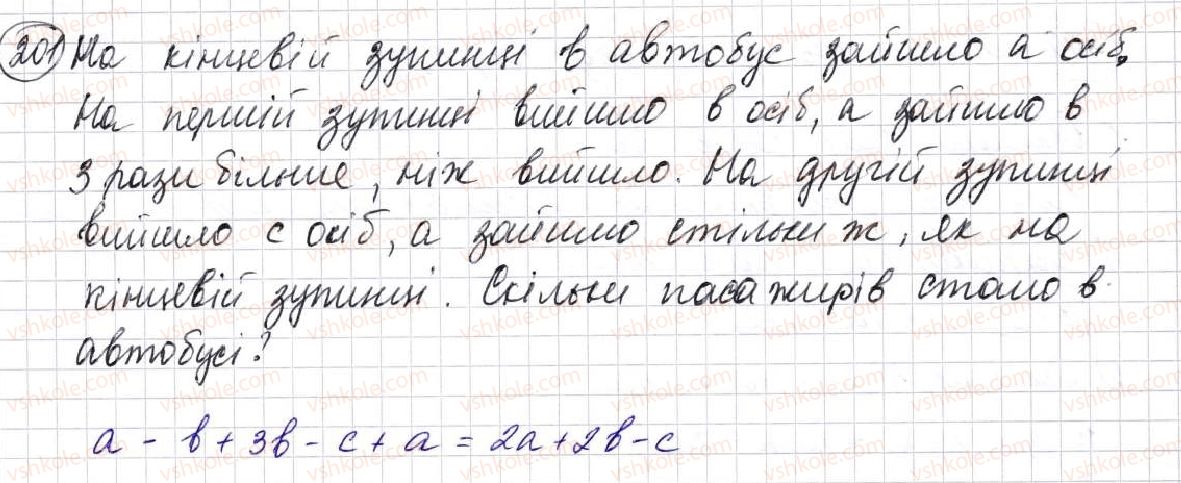 201 На кінцевій зупинці в автобус зайшло a осіб.
На першій зупинці вийшло в осіб, а зайшло в
3 рази більше, ніж вийшло. На другій зупинці
вийшло с осіб, а зайшло стільки ж, як на
кінцевій зупинці. Скільки пасажирів стало в
автобусі?
a - b + 3b - c + a = 2a + 2b - c